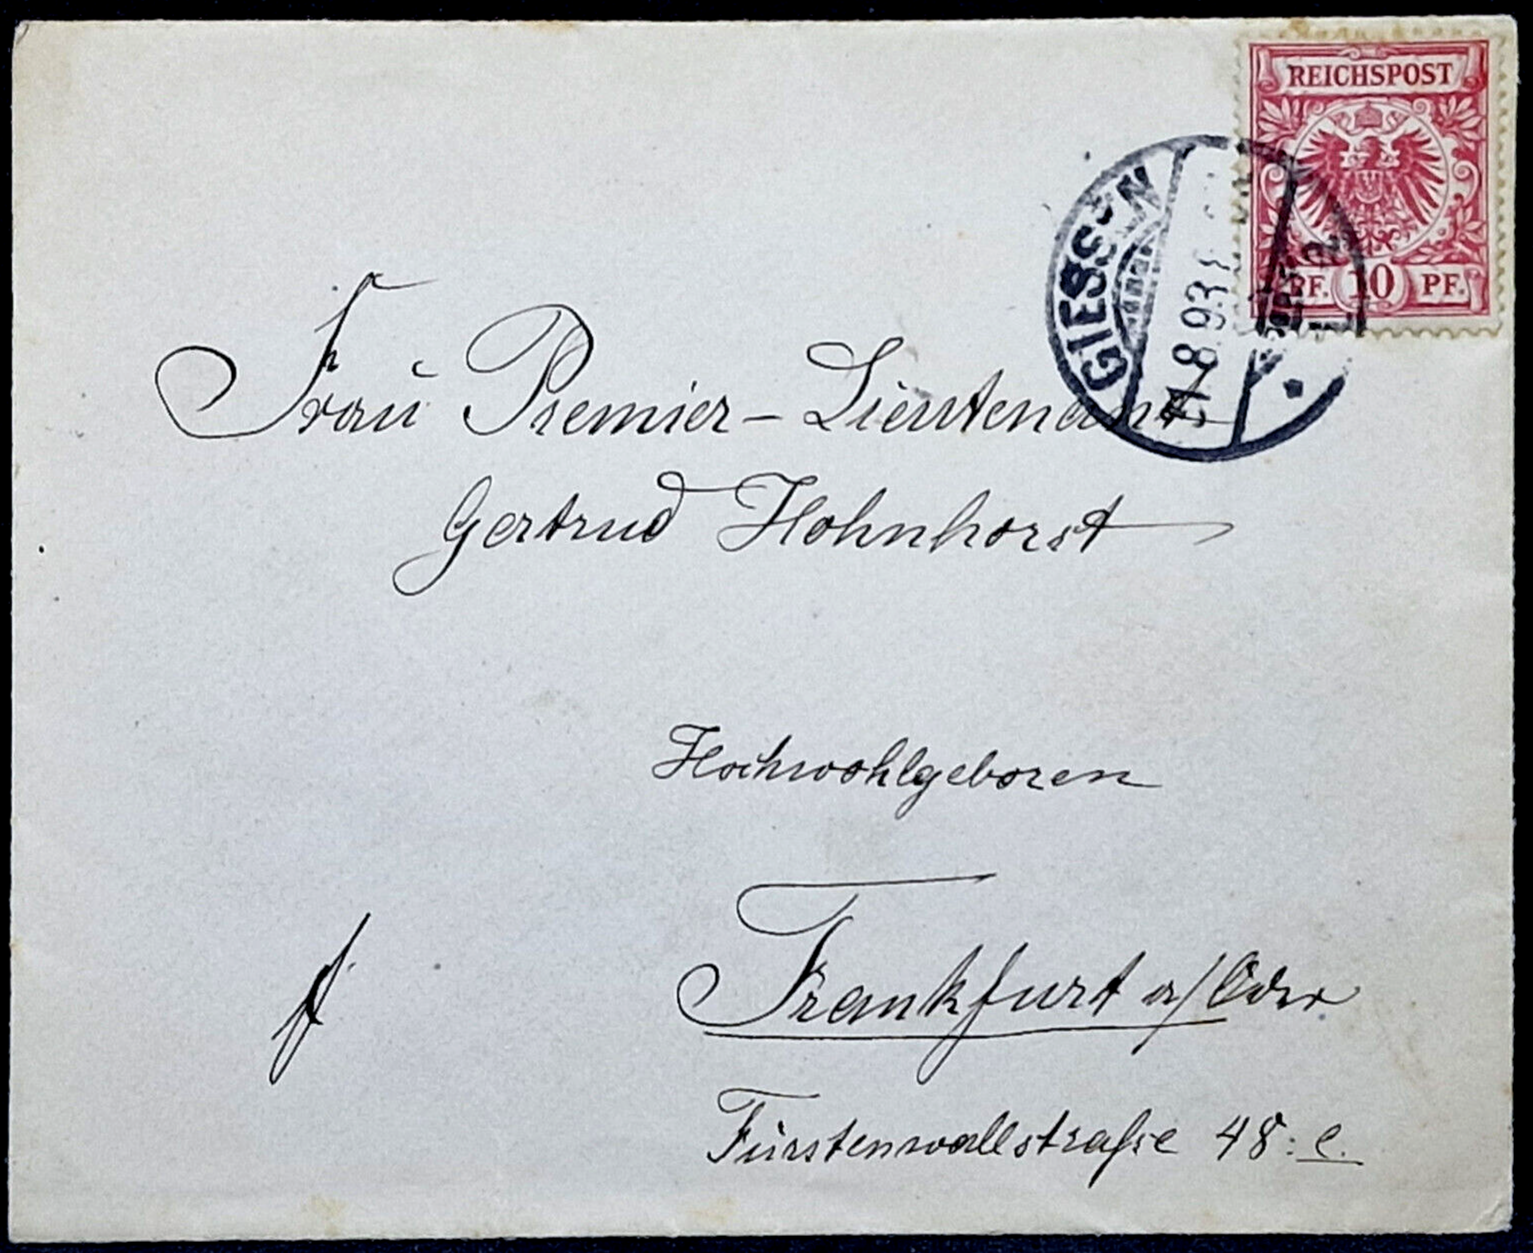 REICHSPOST
PF. 10 PF.
GIESSEN
8.93
Frau Premier-Lieutenant
Gertrud Hohnhorst
Hochwohlgeboren
Frankfurt a/Oder
Fürstenwallstraße 48: